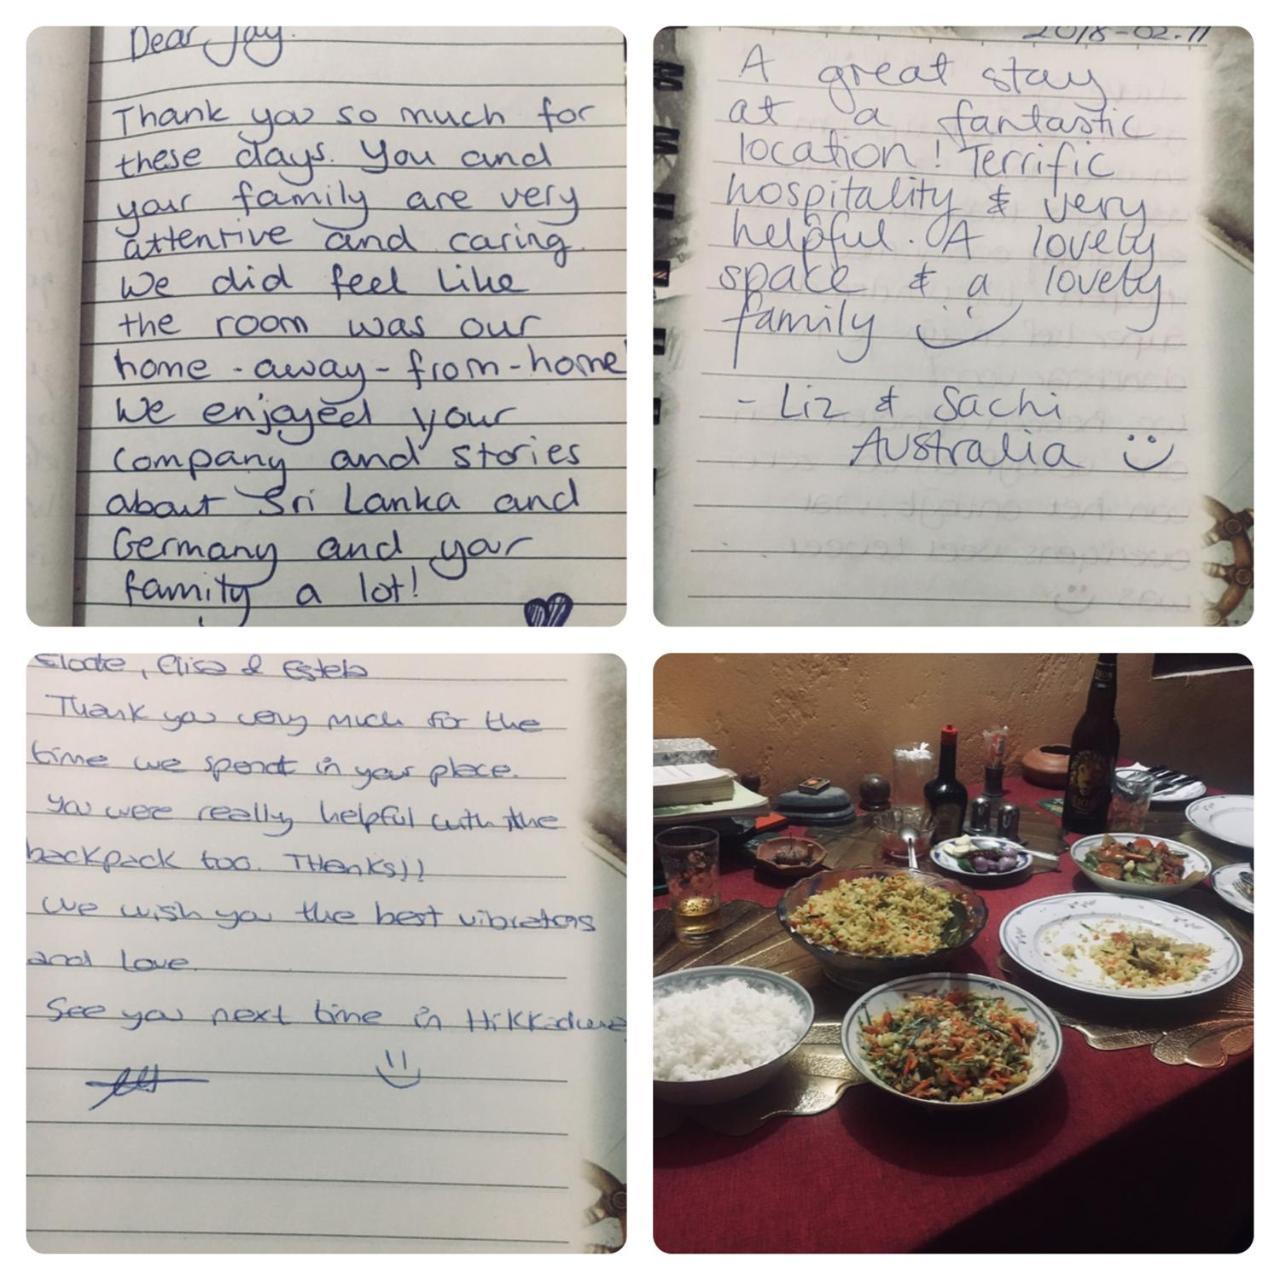 Dear Jay.
Thank you so much for
these days. You and
your family are very
attentive and caring.
We did feel like
the room was our
home-away-from-home!
We enjoyed your
company and stories
about Sri Lanka and
Germany and your
family a lot!
2018-02-11
A great stay
at a fantastic
location! Terrific
hospitality & very
helpful. A lovely
space & a lovely
family
- Liz & Sachi
Australia
Elisa & Estela
Thank you very much for the
time we spend in your place.
You were really helpful with the
backpack too. THanks!!
We wish you the best vibrations
and love.
See you next time in Hikkaduwa